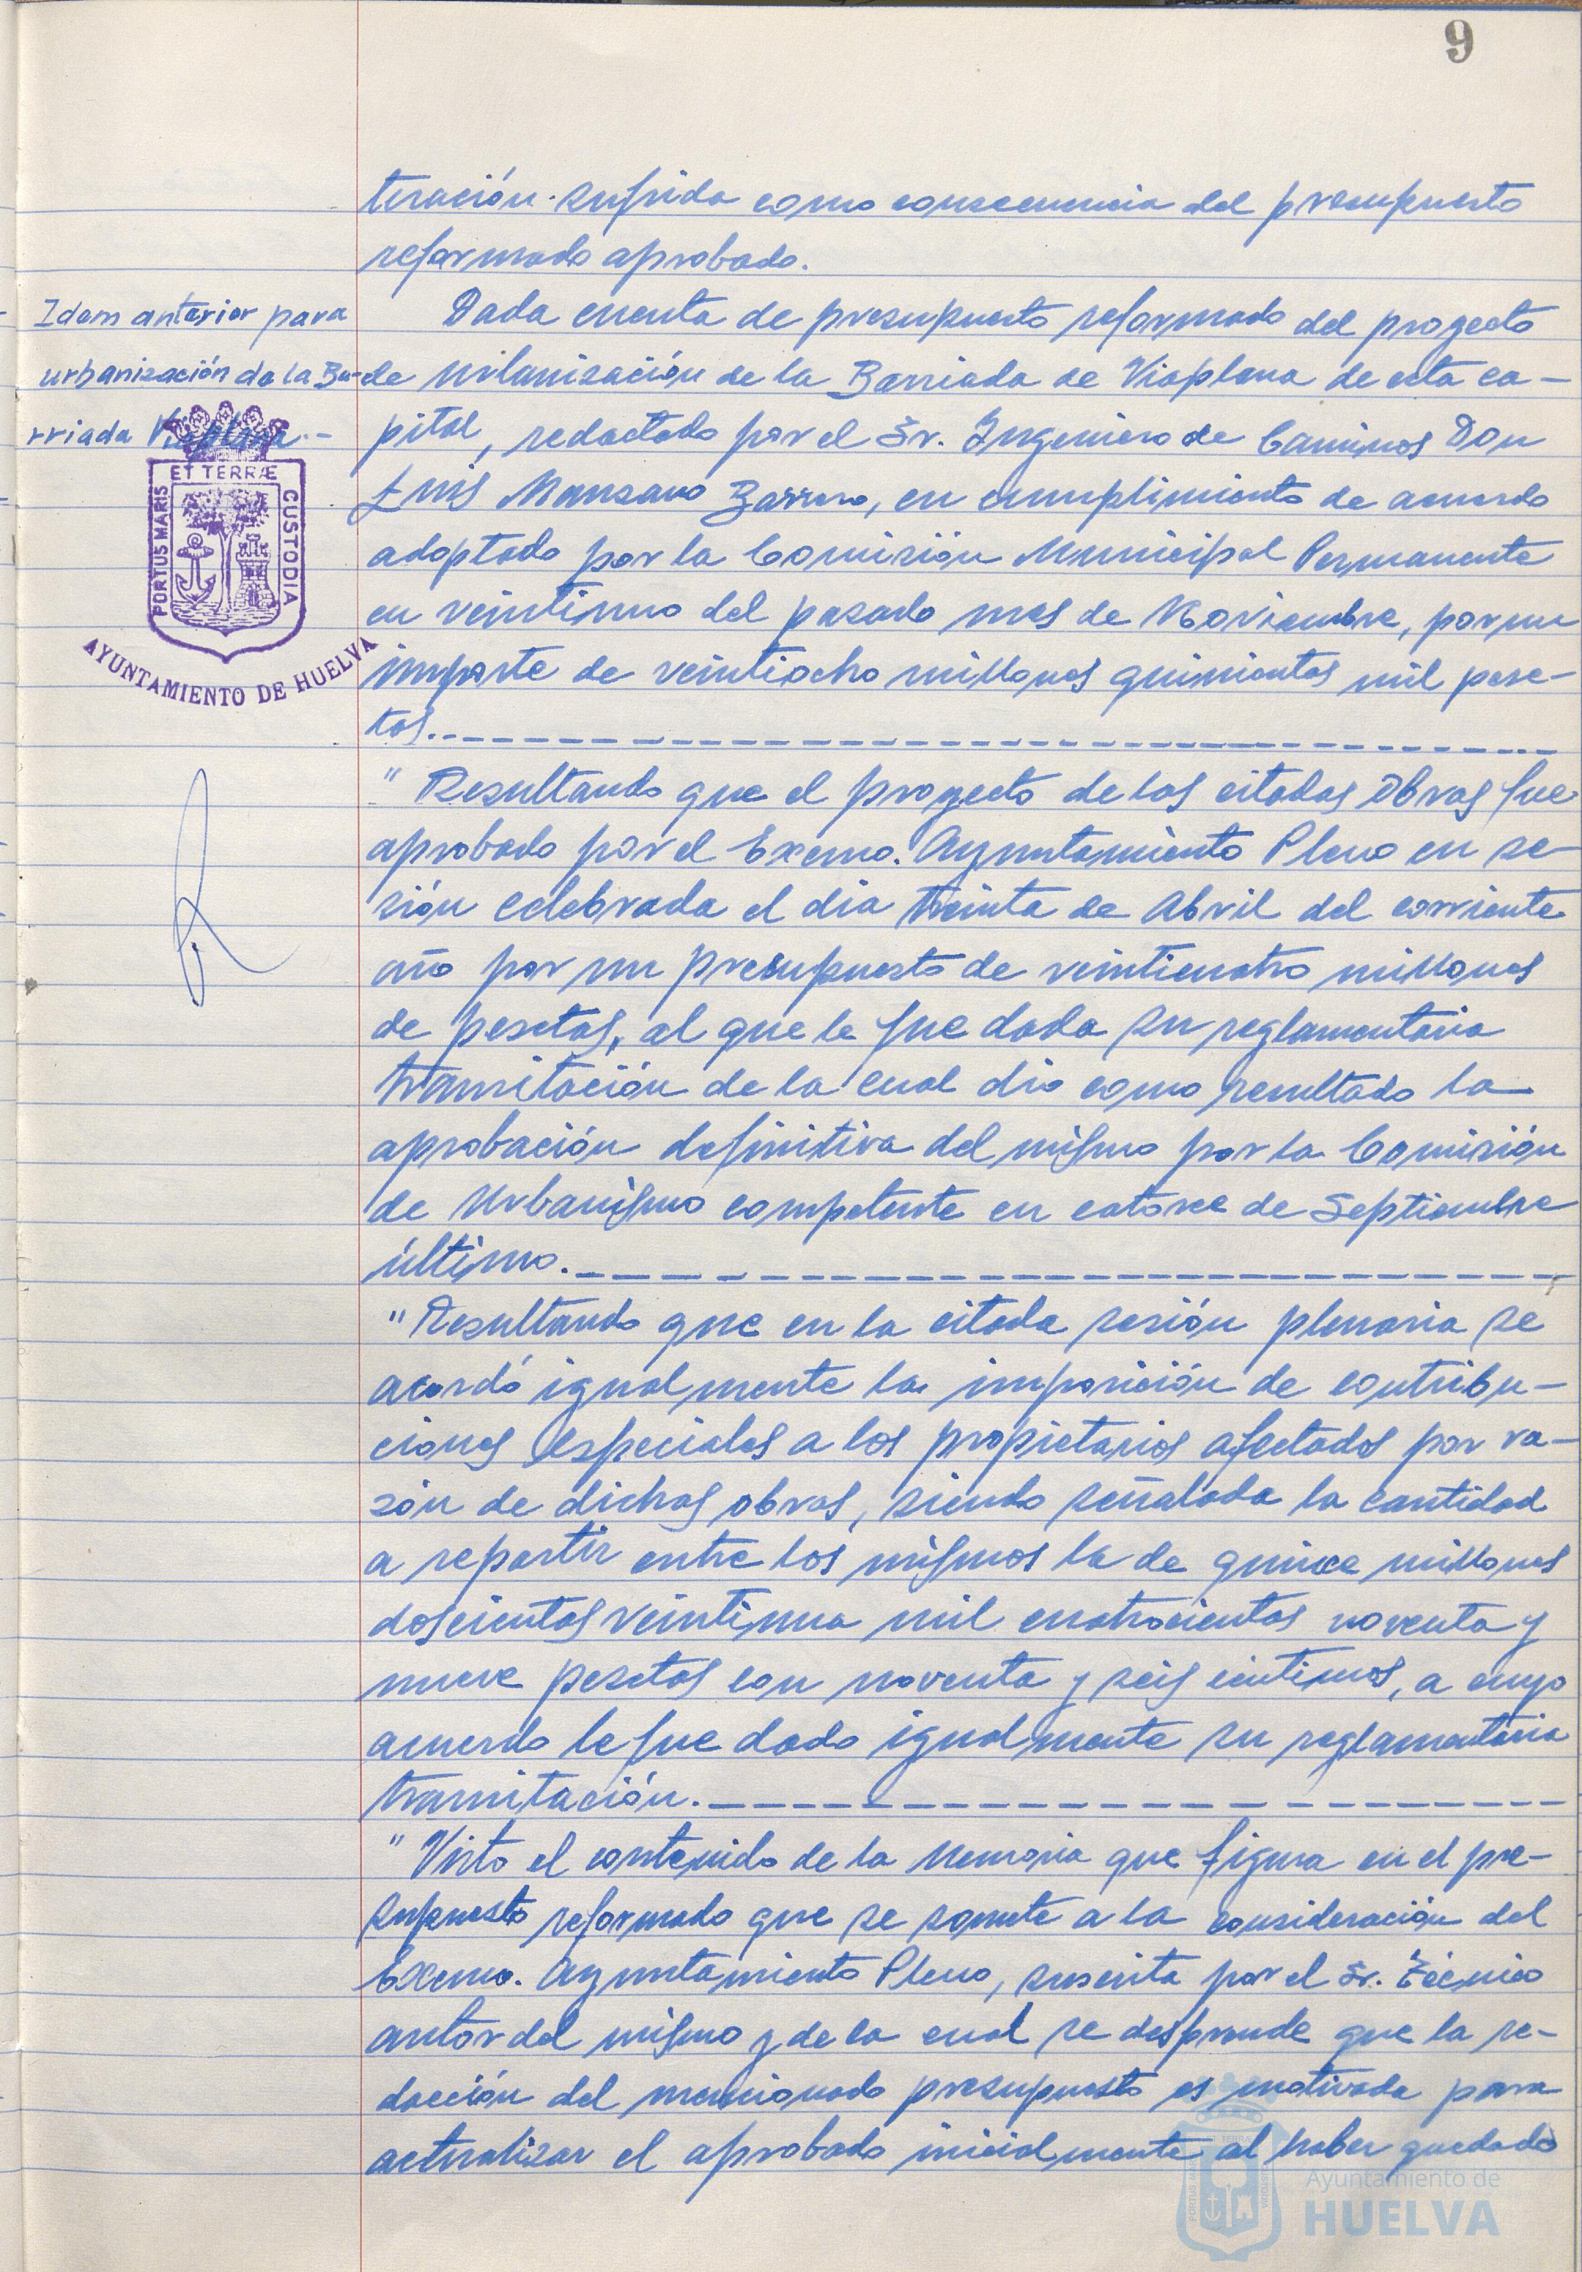 9
teración sufrida como consecuencia del presupuesto
reformado aprobado.
Idem anterior para
urbanización de la Ba-
rriada Viaplana.-
Dada cuenta de presupuesto reformado del proyecto
de urbanización de la Barriada de Viaplana de esta ca-
pital, redactado por el Sr. Ingeniero de Caminos Don
Luis Manzano Barrero, en cumplimiento de acuerdo
adoptado por la Comisión Municipal Permanente
en veintiuno del pasado mes de Noviembre, por un
importe de veintiocho millones quinientas mil pese-
tas.
PORTUS MARIS
ET TERRÆ
CUSTODIA
AYUNTAMIENTO DE HUELVA
" Resultando que el proyecto de las citadas Obras fue
aprobado por el Excmo. Ayuntamiento Pleno en se-
sión celebrada el dia treinta de Abril del corriente
año por un presupuesto de veinticuatro millones
de pesetas, al que le fue dada su reglamentaria
tramitación de la cual dio como resultado la
aprobación definitiva del mismo por la Comisión
de Urbanismo competente en catorce de Septiembre
último.
" Resultando que en la citada sesión plenaria se
acordó igualmente la imposición de contribu-
ciones especiales a los propietarios afectados por ra-
zón de dichas obras, siendo señalada la cantidad
a repartir entre los mismos la de quince millones
doscientas veintinua mil cuatrocientas noventa y
nueve pesetas con noventa y seis céntimos, a cuyo
acuerdo le fue dado igualmente su reglamentaria
tramitación.
" Visto el contenido de la Memoria que figura en el pre-
supuesto reformado que se somete a la consideración del
Excmo. Ayuntamiento Pleno, suscrita por el Sr. Técnico
autor del mismo y de la cual se desprende que la re-
dacción del mencionado presupuesto es motivada para
actualizar el aprobado inicialmente al haber quedado
Ayuntamiento de
HUELVA